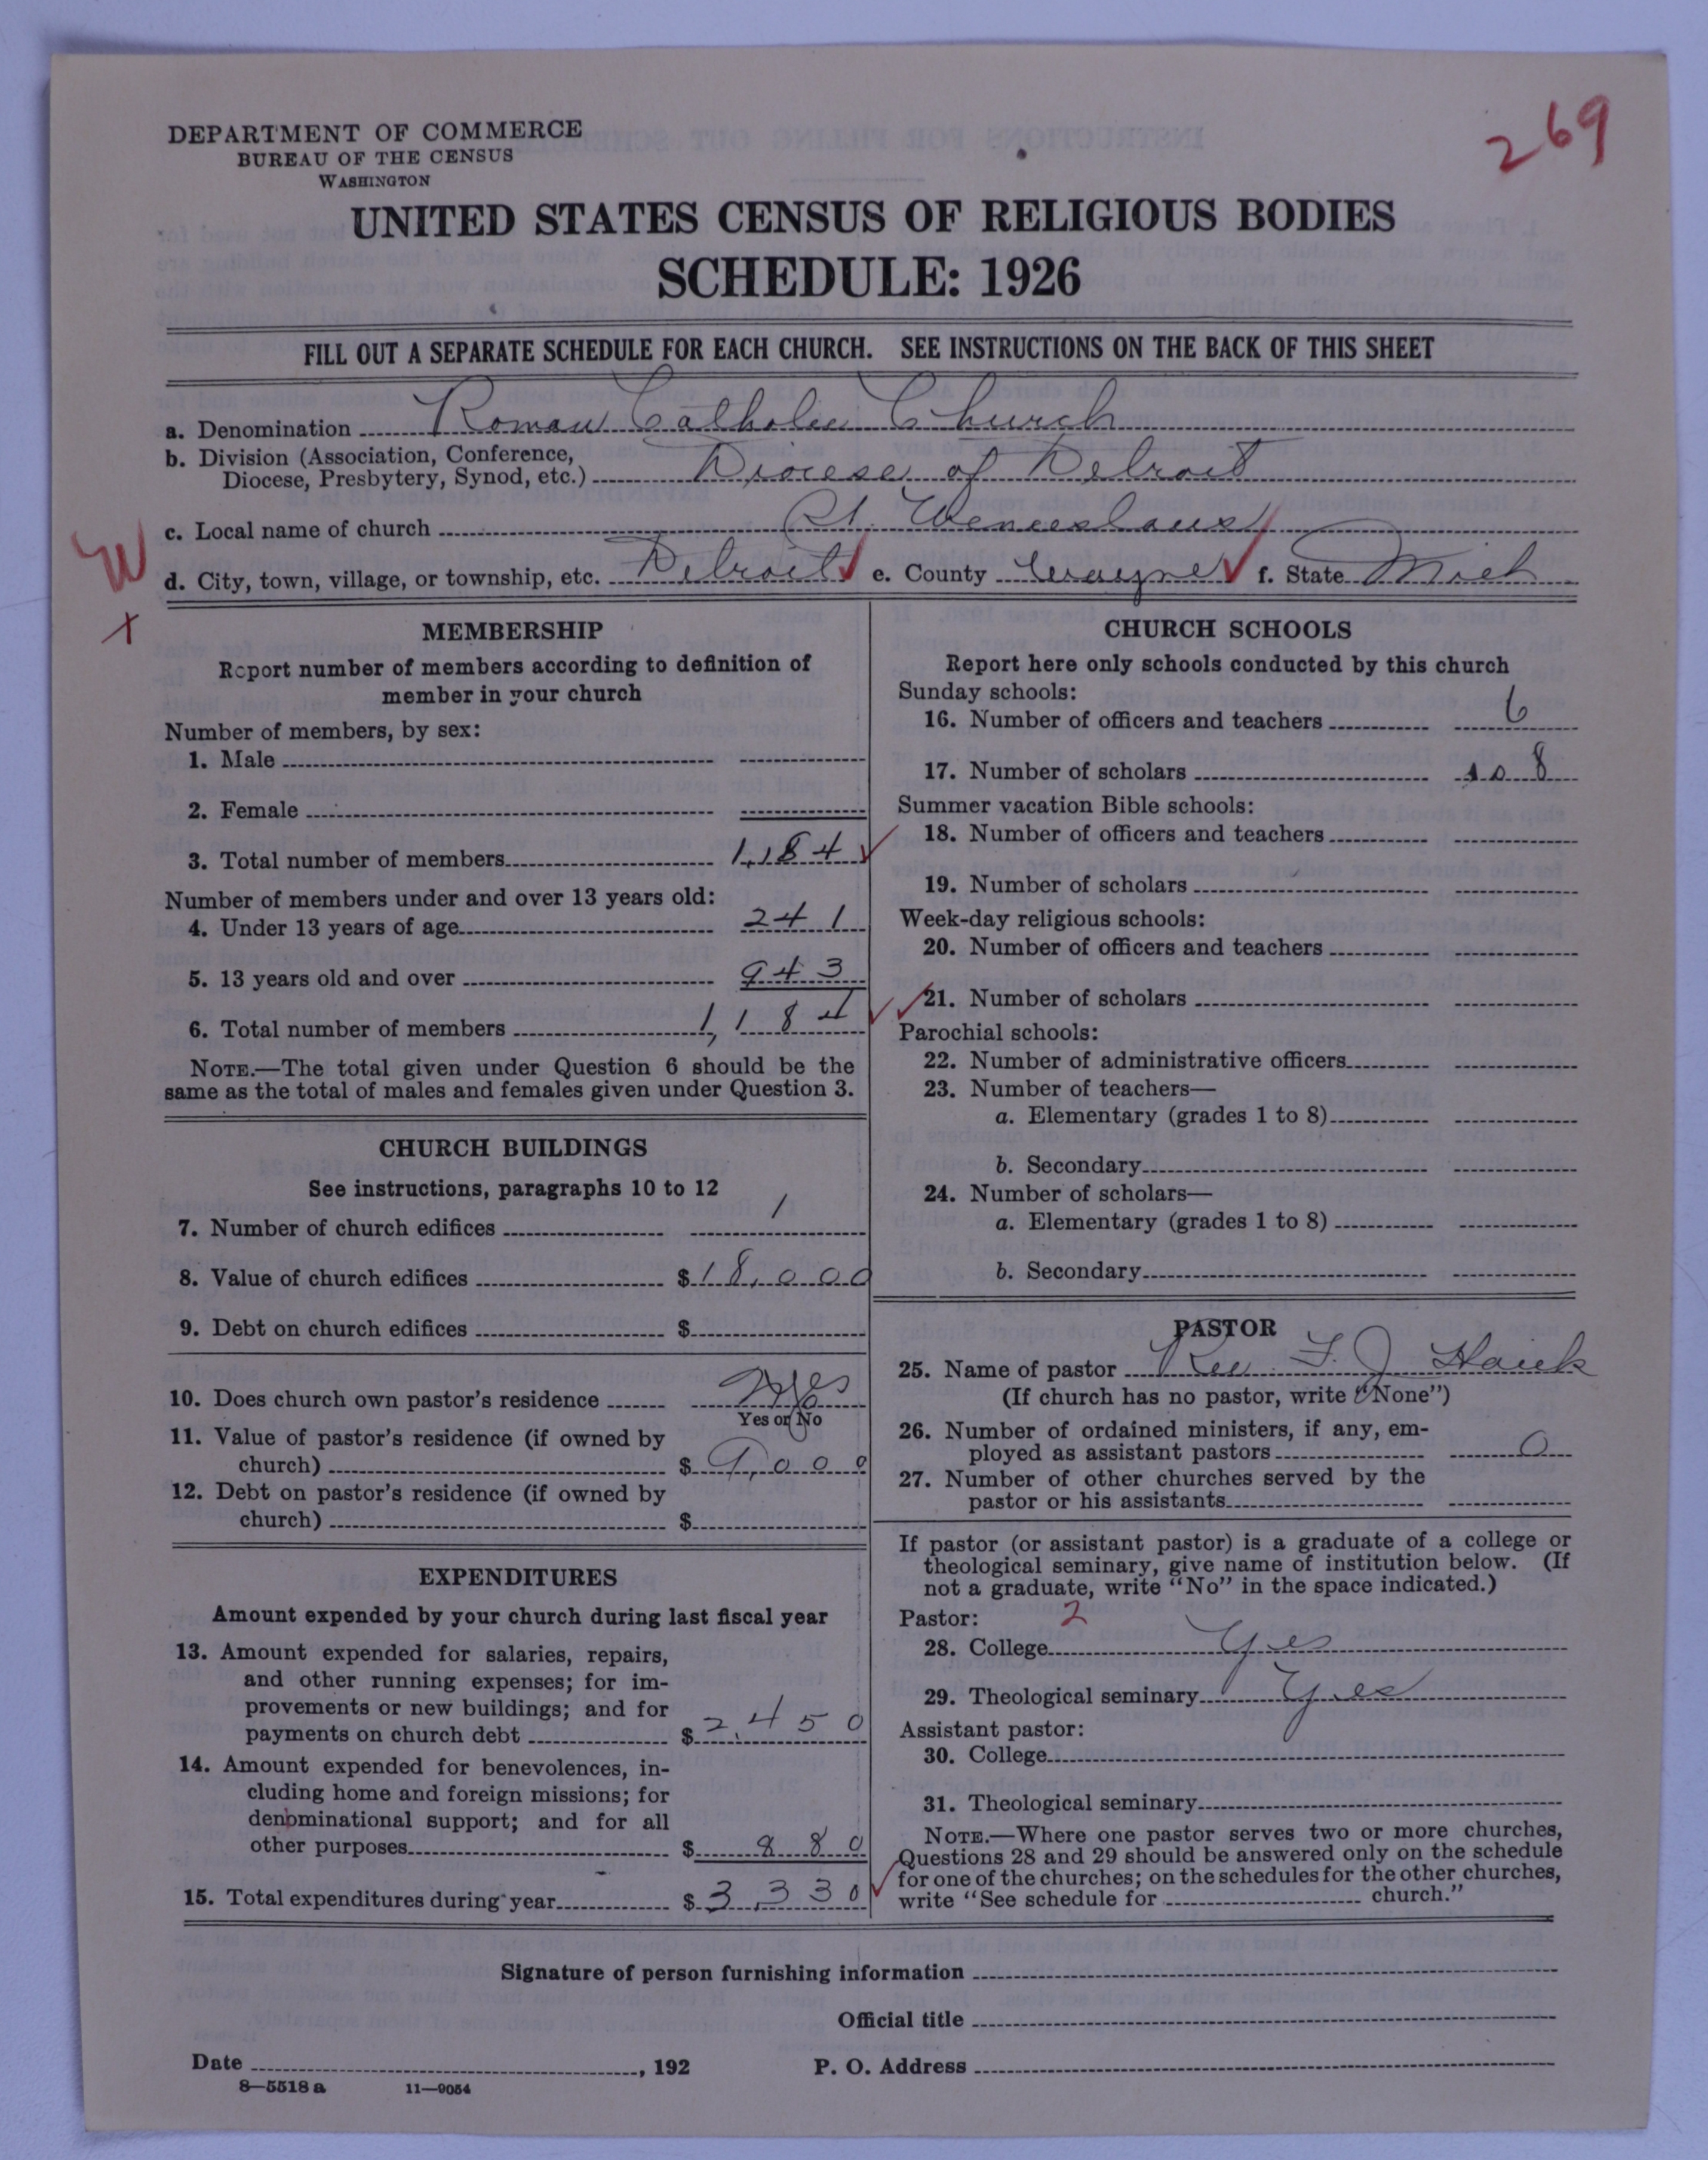 269
DEPARTMENT OF COMMERCE
BUREAU OF THE CENSUS
WASHINGTON
UNITED STATES CENSUS OF RELIGIOUS BODIES
SCHEDULE: 1926
FILL OUT A SEPARATE SCHEDULE FOR EACH CHURCH. SEE INSTRUCTIONS ON THE BACK OF THIS SHEET
a. Denomination Roman Catholic Church
b. Division (Association, Conference,
Diocese, Presbytery, Synod, etc.) Diocese of Detroit
c. Local name of church St. Wenceslaus
W
d. City, town, village, or township, etc. Detroit ✓ e. County Wayne ✓ f. State Mich
x
MEMBERSHIP
Report number of members according to definition of
member in your church
Number of members, by sex:
1. Male
2. Female
3. Total number of members 1,184 ✓
Number of members under and over 13 years old:
4. Under 13 years of age 241
5. 13 years old and over 943
6. Total number of members 1,184 ✓
NOTE.—The total given under Question 6 should be the
same as the total of males and females given under Question 3.
CHURCH BUILDINGS
See instructions, paragraphs 10 to 12
7. Number of church edifices 1
8. Value of church edifices $18,000
9. Debt on church edifices $
10. Does church own pastor's residence Yes
Yes or No
11. Value of pastor's residence (if owned by
church) $9,000
12. Debt on pastor's residence (if owned by
church) $
EXPENDITURES
Amount expended by your church during last fiscal year
13. Amount expended for salaries, repairs,
and other running expenses; for im-
provements or new buildings; and for
payments on church debt $2,450
14. Amount expended for benevolences, in-
cluding home and foreign missions; for
denominational support; and for all
other purposes $880
15. Total expenditures during year $3,330 ✓
CHURCH SCHOOLS
Report here only schools conducted by this church
Sunday schools:
16. Number of officers and teachers 6
17. Number of scholars 108
Summer vacation Bible schools:
18. Number of officers and teachers
19. Number of scholars
Week-day religious schools:
20. Number of officers and teachers
✓ 21. Number of scholars
Parochial schools:
22. Number of administrative officers
23. Number of teachers—
a. Elementary (grades 1 to 8)
b. Secondary
24. Number of scholars—
a. Elementary (grades 1 to 8)
b. Secondary
PASTOR
25. Name of pastor Rev. F. J. Hauk
(If church has no pastor, write "None")
26. Number of ordained ministers, if any, em-
ployed as assistant pastors 0
27. Number of other churches served by the
pastor or his assistants
If pastor (or assistant pastor) is a graduate of a college or
theological seminary, give name of institution below. (If
not a graduate, write "No" in the space indicated.)
Pastor: 2
28. College Yes
29. Theological seminary Yes
Assistant pastor:
30. College
31. Theological seminary
NOTE.—Where one pastor serves two or more churches,
Questions 28 and 29 should be answered only on the schedule
for one of the churches; on the schedules for the other churches,
write "See schedule for church."
Signature of person furnishing information
Official title
Date , 192 P. O. Address
8—5518 a 11—9054